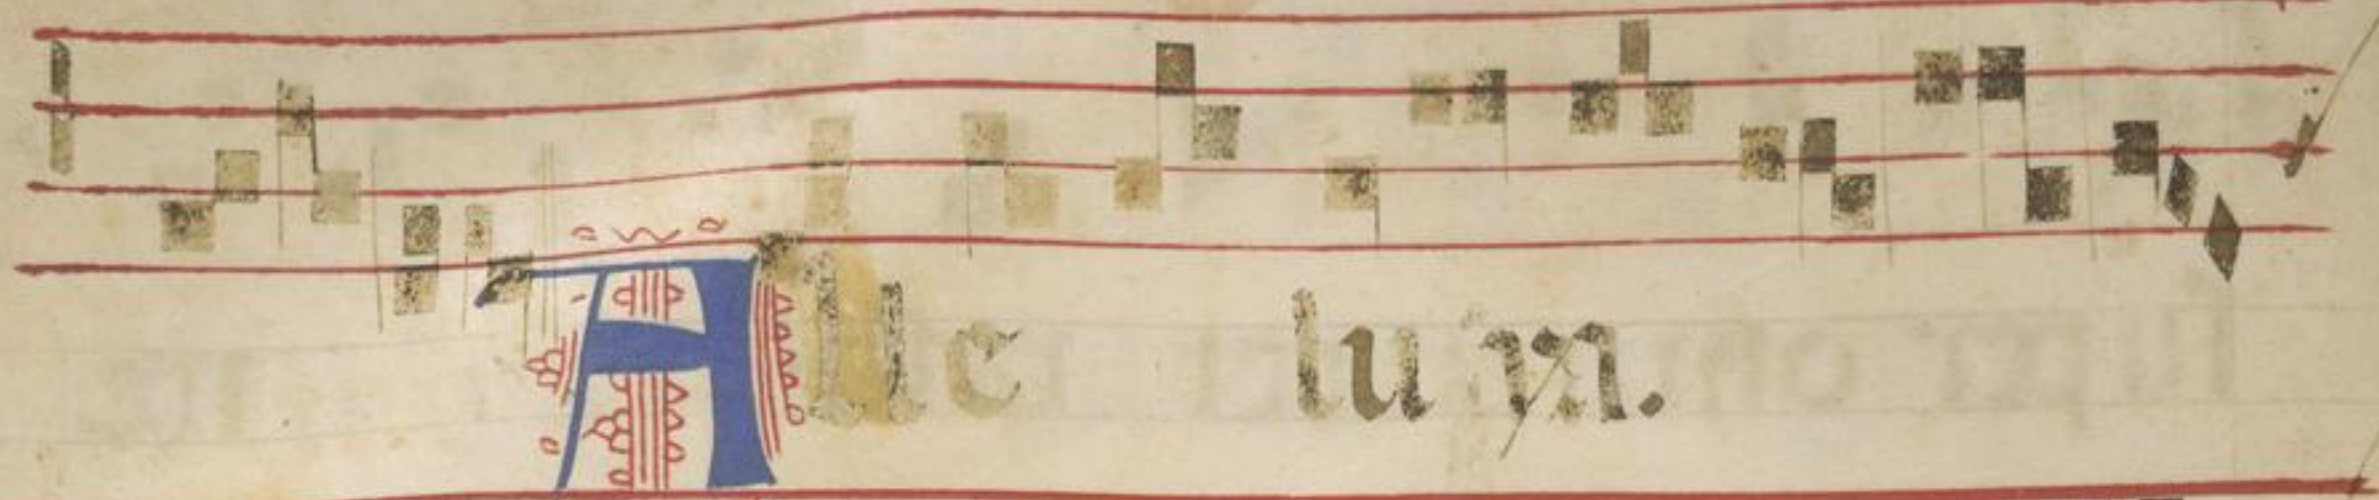 Alle lu ya.